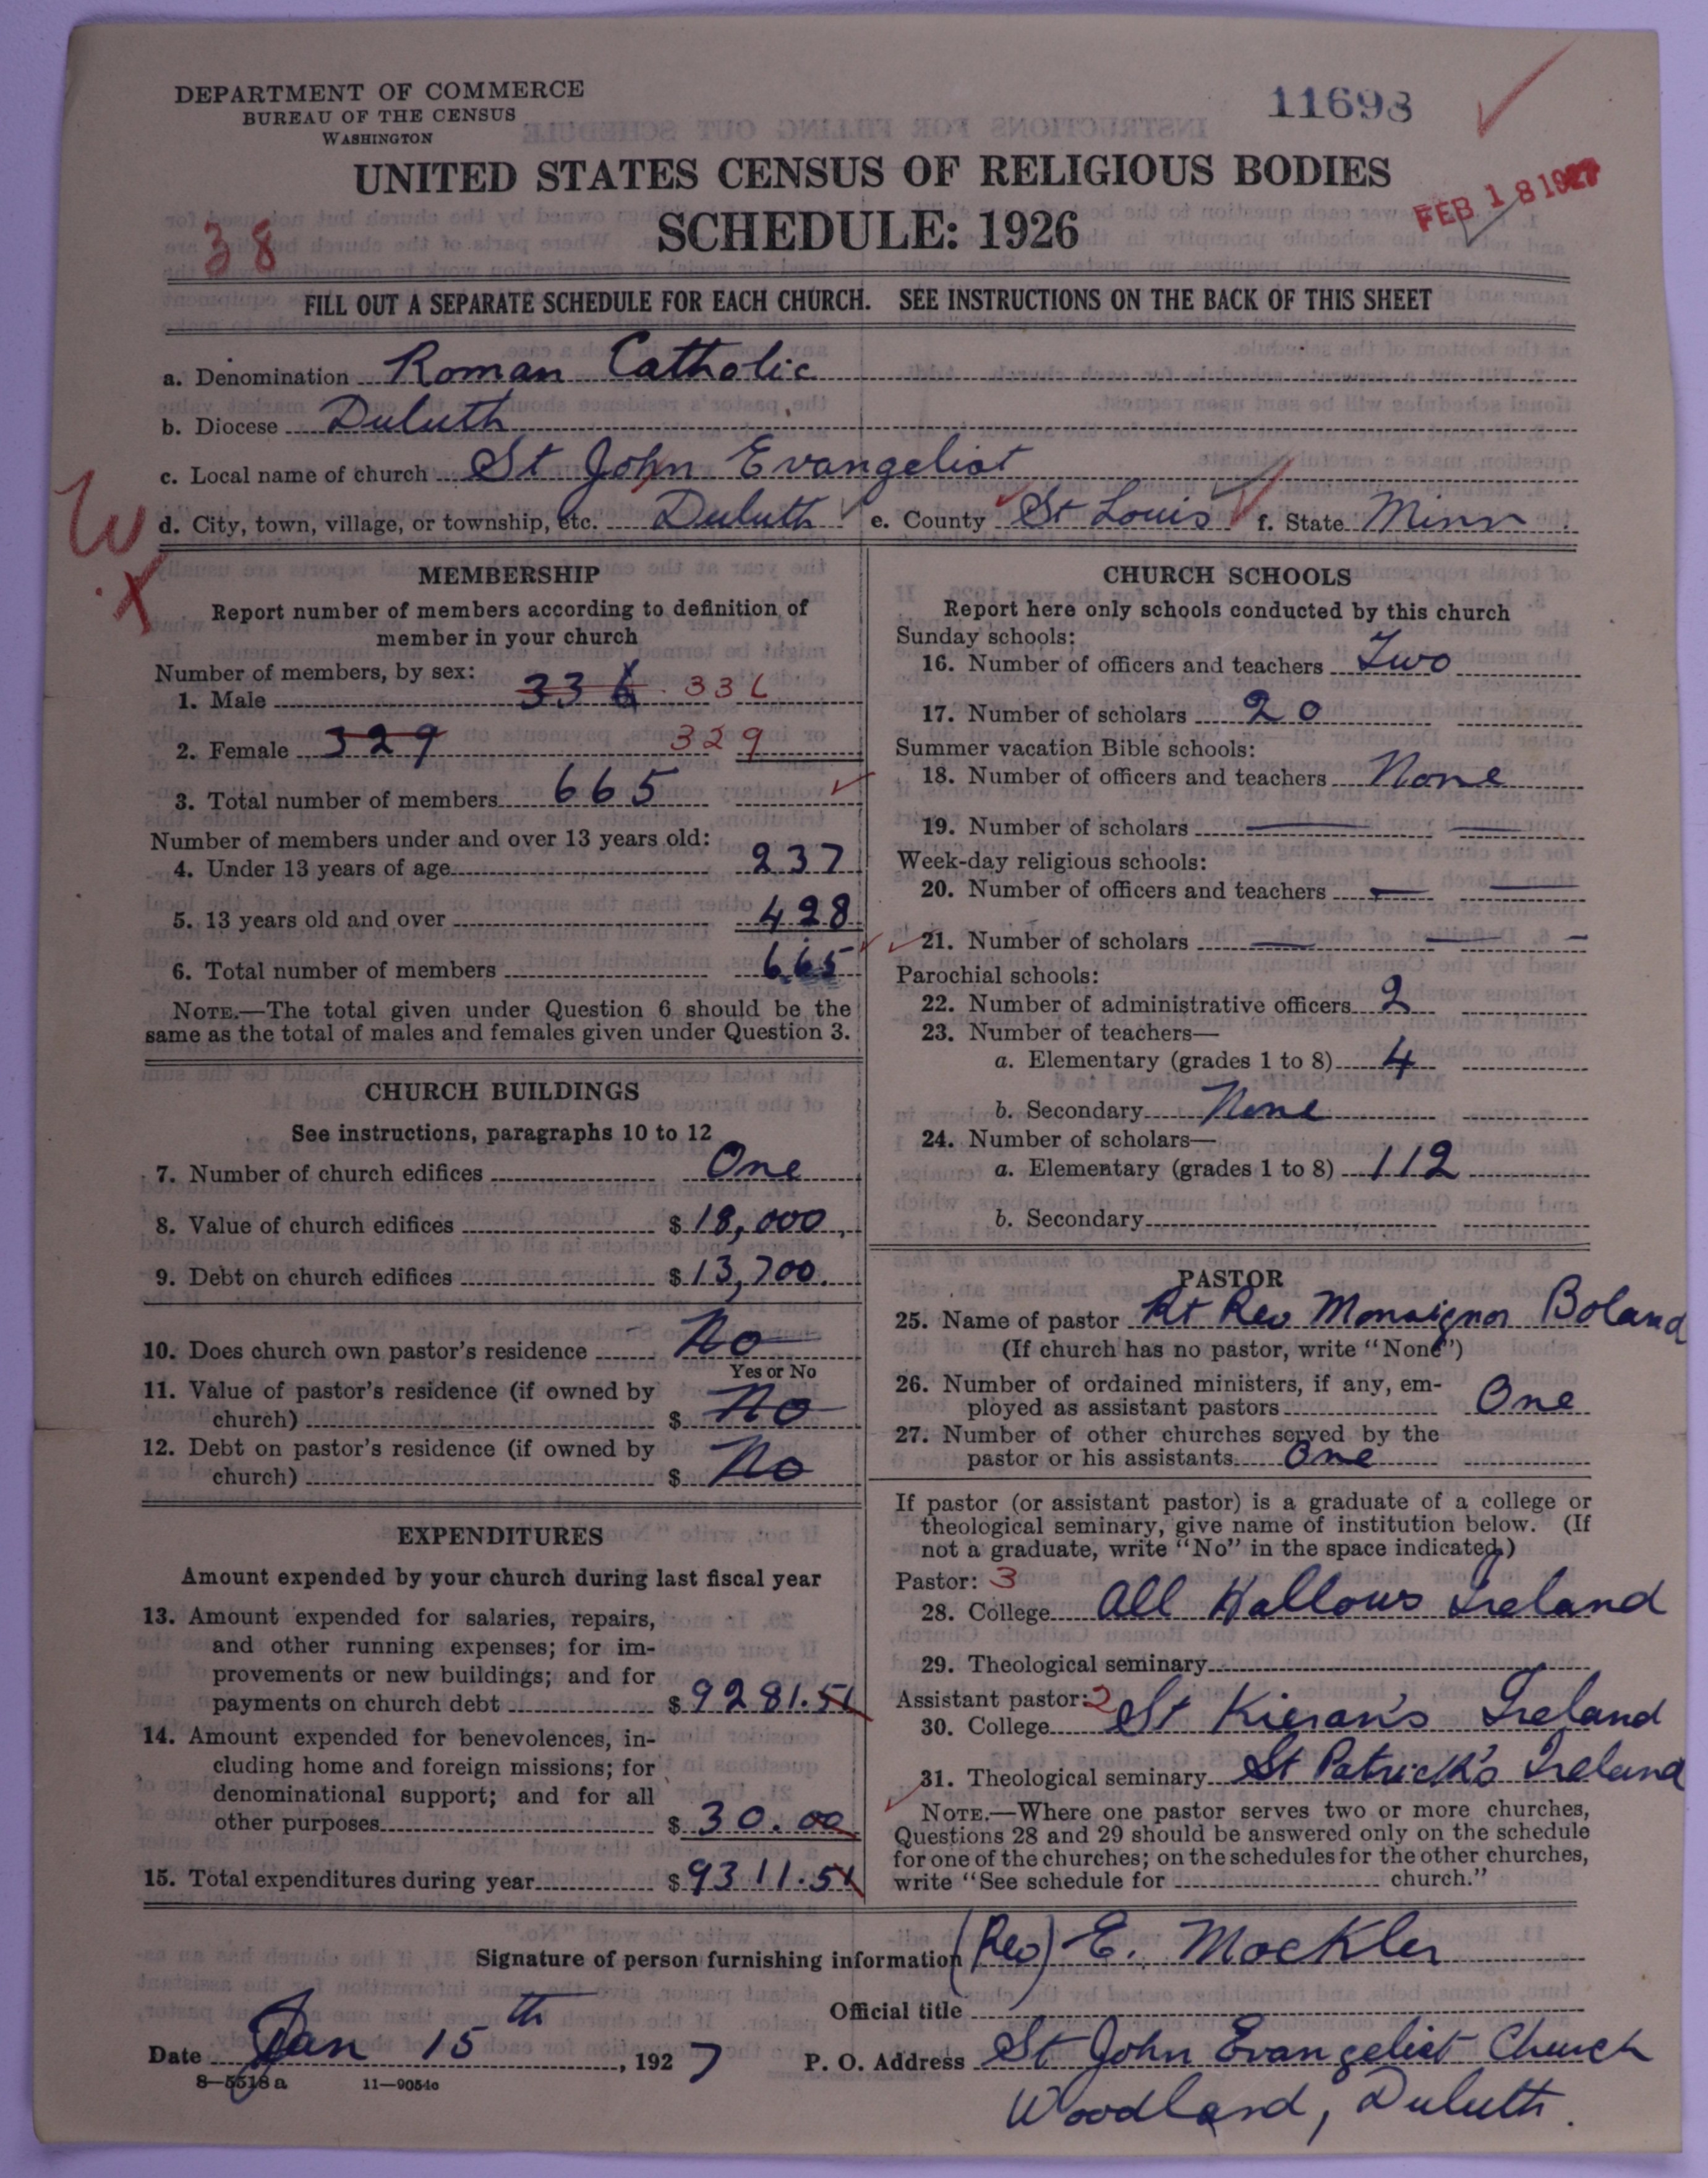 DEPARTMENT OF COMMERCE
BUREAU OF THE CENSUS
WASHINGTON
11698
UNITED STATES CENSUS OF RELIGIOUS BODIES
SCHEDULE: 1926
FEB 18 1927
38
FILL OUT A SEPARATE SCHEDULE FOR EACH CHURCH. SEE INSTRUCTIONS ON THE BACK OF THIS SHEET
a. Denomination Roman Catholic
b. Diocese Duluth
c. Local name of church St John Evangelist
W
d. City, town, village, or township, etc. Duluth e. County St Louis f. State Minn
MEMBERSHIP
Report number of members according to definition of
member in your church
Number of members, by sex:
1. Male 336 336
2. Female 329 329
3. Total number of members 665
Number of members under and over 13 years old:
4. Under 13 years of age 237
5. 13 years old and over 428
6. Total number of members 665
NOTE.—The total given under Question 6 should be the
same as the total of males and females given under Question 3.
CHURCH BUILDINGS
See instructions, paragraphs 10 to 12
7. Number of church edifices One
8. Value of church edifices $ 18,000
9. Debt on church edifices $ 13,700.
10. Does church own pastor's residence No
Yes or No
11. Value of pastor's residence (if owned by
church) $ No
12. Debt on pastor's residence (if owned by
church) $ No
EXPENDITURES
Amount expended by your church during last fiscal year
13. Amount expended for salaries, repairs,
and other running expenses; for im-
provements or new buildings; and for
payments on church debt $ 9281.51
14. Amount expended for benevolences, in-
cluding home and foreign missions; for
denominational support; and for all
other purposes $ 30.00
15. Total expenditures during year $ 9311.51
CHURCH SCHOOLS
Report here only schools conducted by this church
Sunday schools:
16. Number of officers and teachers Two
17. Number of scholars 20
Summer vacation Bible schools:
18. Number of officers and teachers None
19. Number of scholars
Week-day religious schools:
20. Number of officers and teachers
21. Number of scholars
Parochial schools:
22. Number of administrative officers 2
23. Number of teachers—
a. Elementary (grades 1 to 8) 4
b. Secondary None
24. Number of scholars—
a. Elementary (grades 1 to 8) 112
b. Secondary
PASTOR
25. Name of pastor Rt Rev Monsignor Boland
(If church has no pastor, write "None")
26. Number of ordained ministers, if any, em-
ployed as assistant pastors One
27. Number of other churches served by the
pastor or his assistants One
If pastor (or assistant pastor) is a graduate of a college or
theological seminary, give name of institution below. (If
not a graduate, write "No" in the space indicated.)
Pastor: 3
28. College All Hallows Ireland
29. Theological seminary
Assistant pastor: 2
30. College St Kieran's Ireland
31. Theological seminary St Patrick's Ireland
NOTE.—Where one pastor serves two or more churches,
Questions 28 and 29 should be answered only on the schedule
for one of the churches; on the schedules for the other churches,
write "See schedule for church."
Signature of person furnishing information (Rev) E. Mockler
Official title
Date Jan 15th, 1927
P. O. Address St John Evangelist Church
Woodland, Duluth.
8—5518a 11—9054c